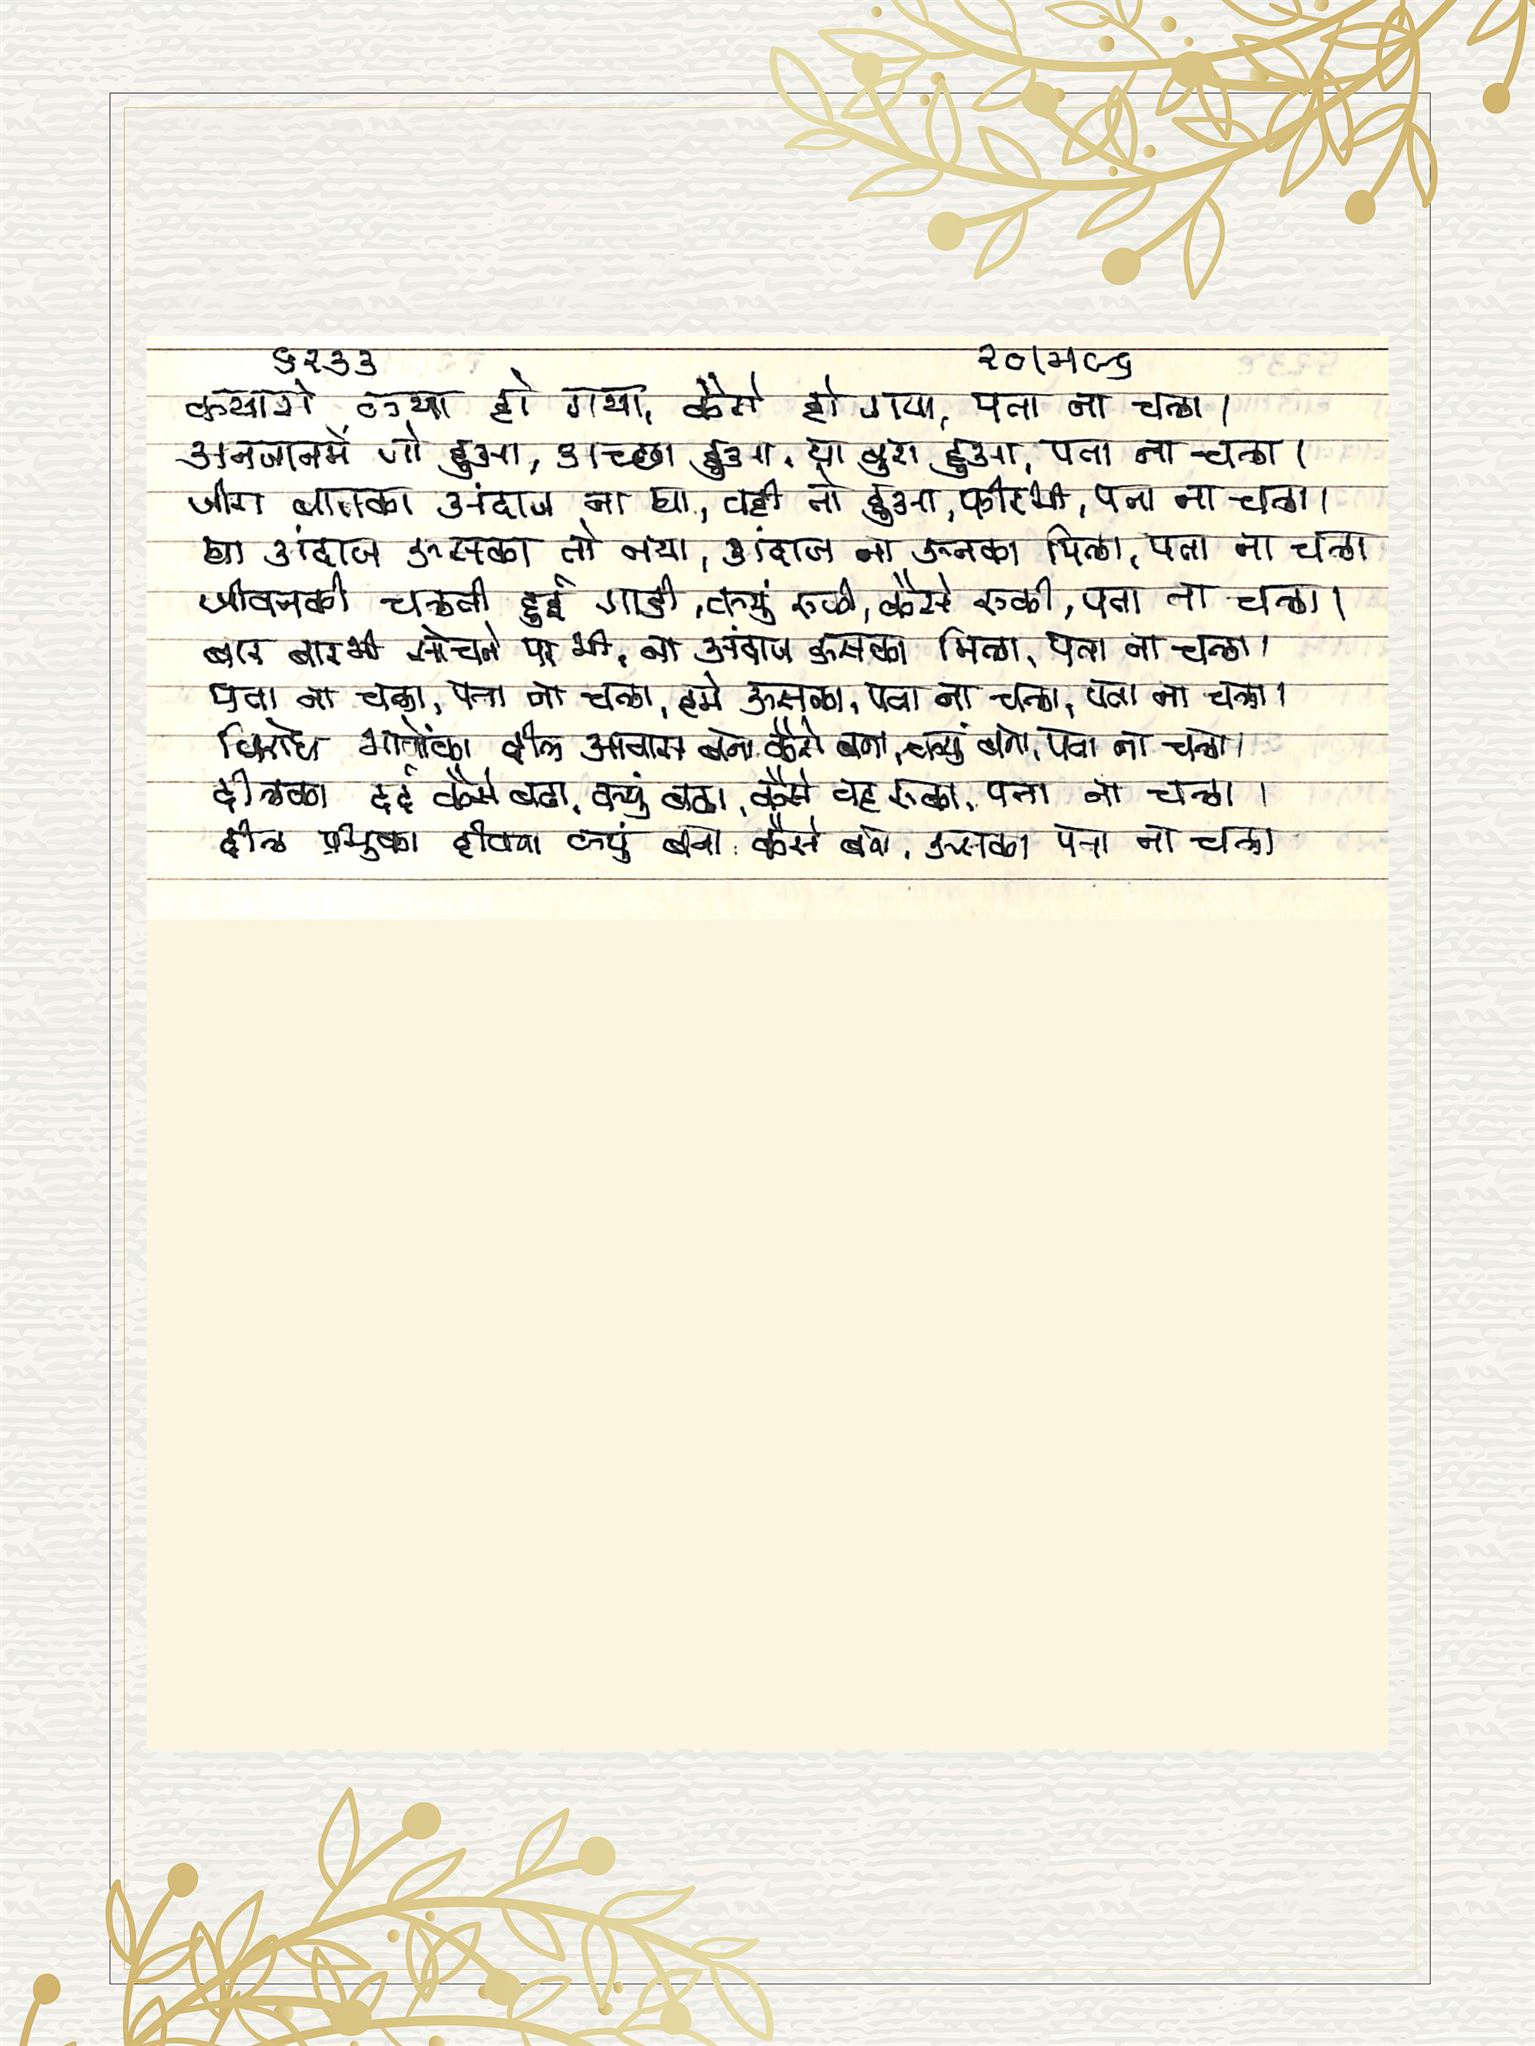 ६२३३ २०।५।८६
क्यासे क्या हो गया, कैसे हो गया, पता ना चला।
अनजानमें जो हुआ, अच्छा हुआ, या बुरा हुआ, पता ना चला।
जीस बातका अंदाज ना था, वही तो हुआ, फीरभी, पता ना चला।
था अंदाज ऊसका तो नया, अंदाज ना ऊनका मिला, पता ना चला
जीवनकी चलती हुई गाडी, क्युं रुकी, कैसे रुकी, पता ना चला।
बार बारभी सोचने पर भी, ना अंदाज ऊसका मिला, पता ना चला।
पता ना चला, पता ना चला, हमे ऊसका, पता ना चला, पता ना चला।
विरोध भावोंका दील आवास बना कैसे बना, क्युं बना, पता ना चला।
दीलका दर्द कैसे बढा, क्युं बढा, कैसे वह रुका, पता ना चला।
दील प्रभुका दीवाना क्युं बना कैसे बना, ऊसका पता ना चला